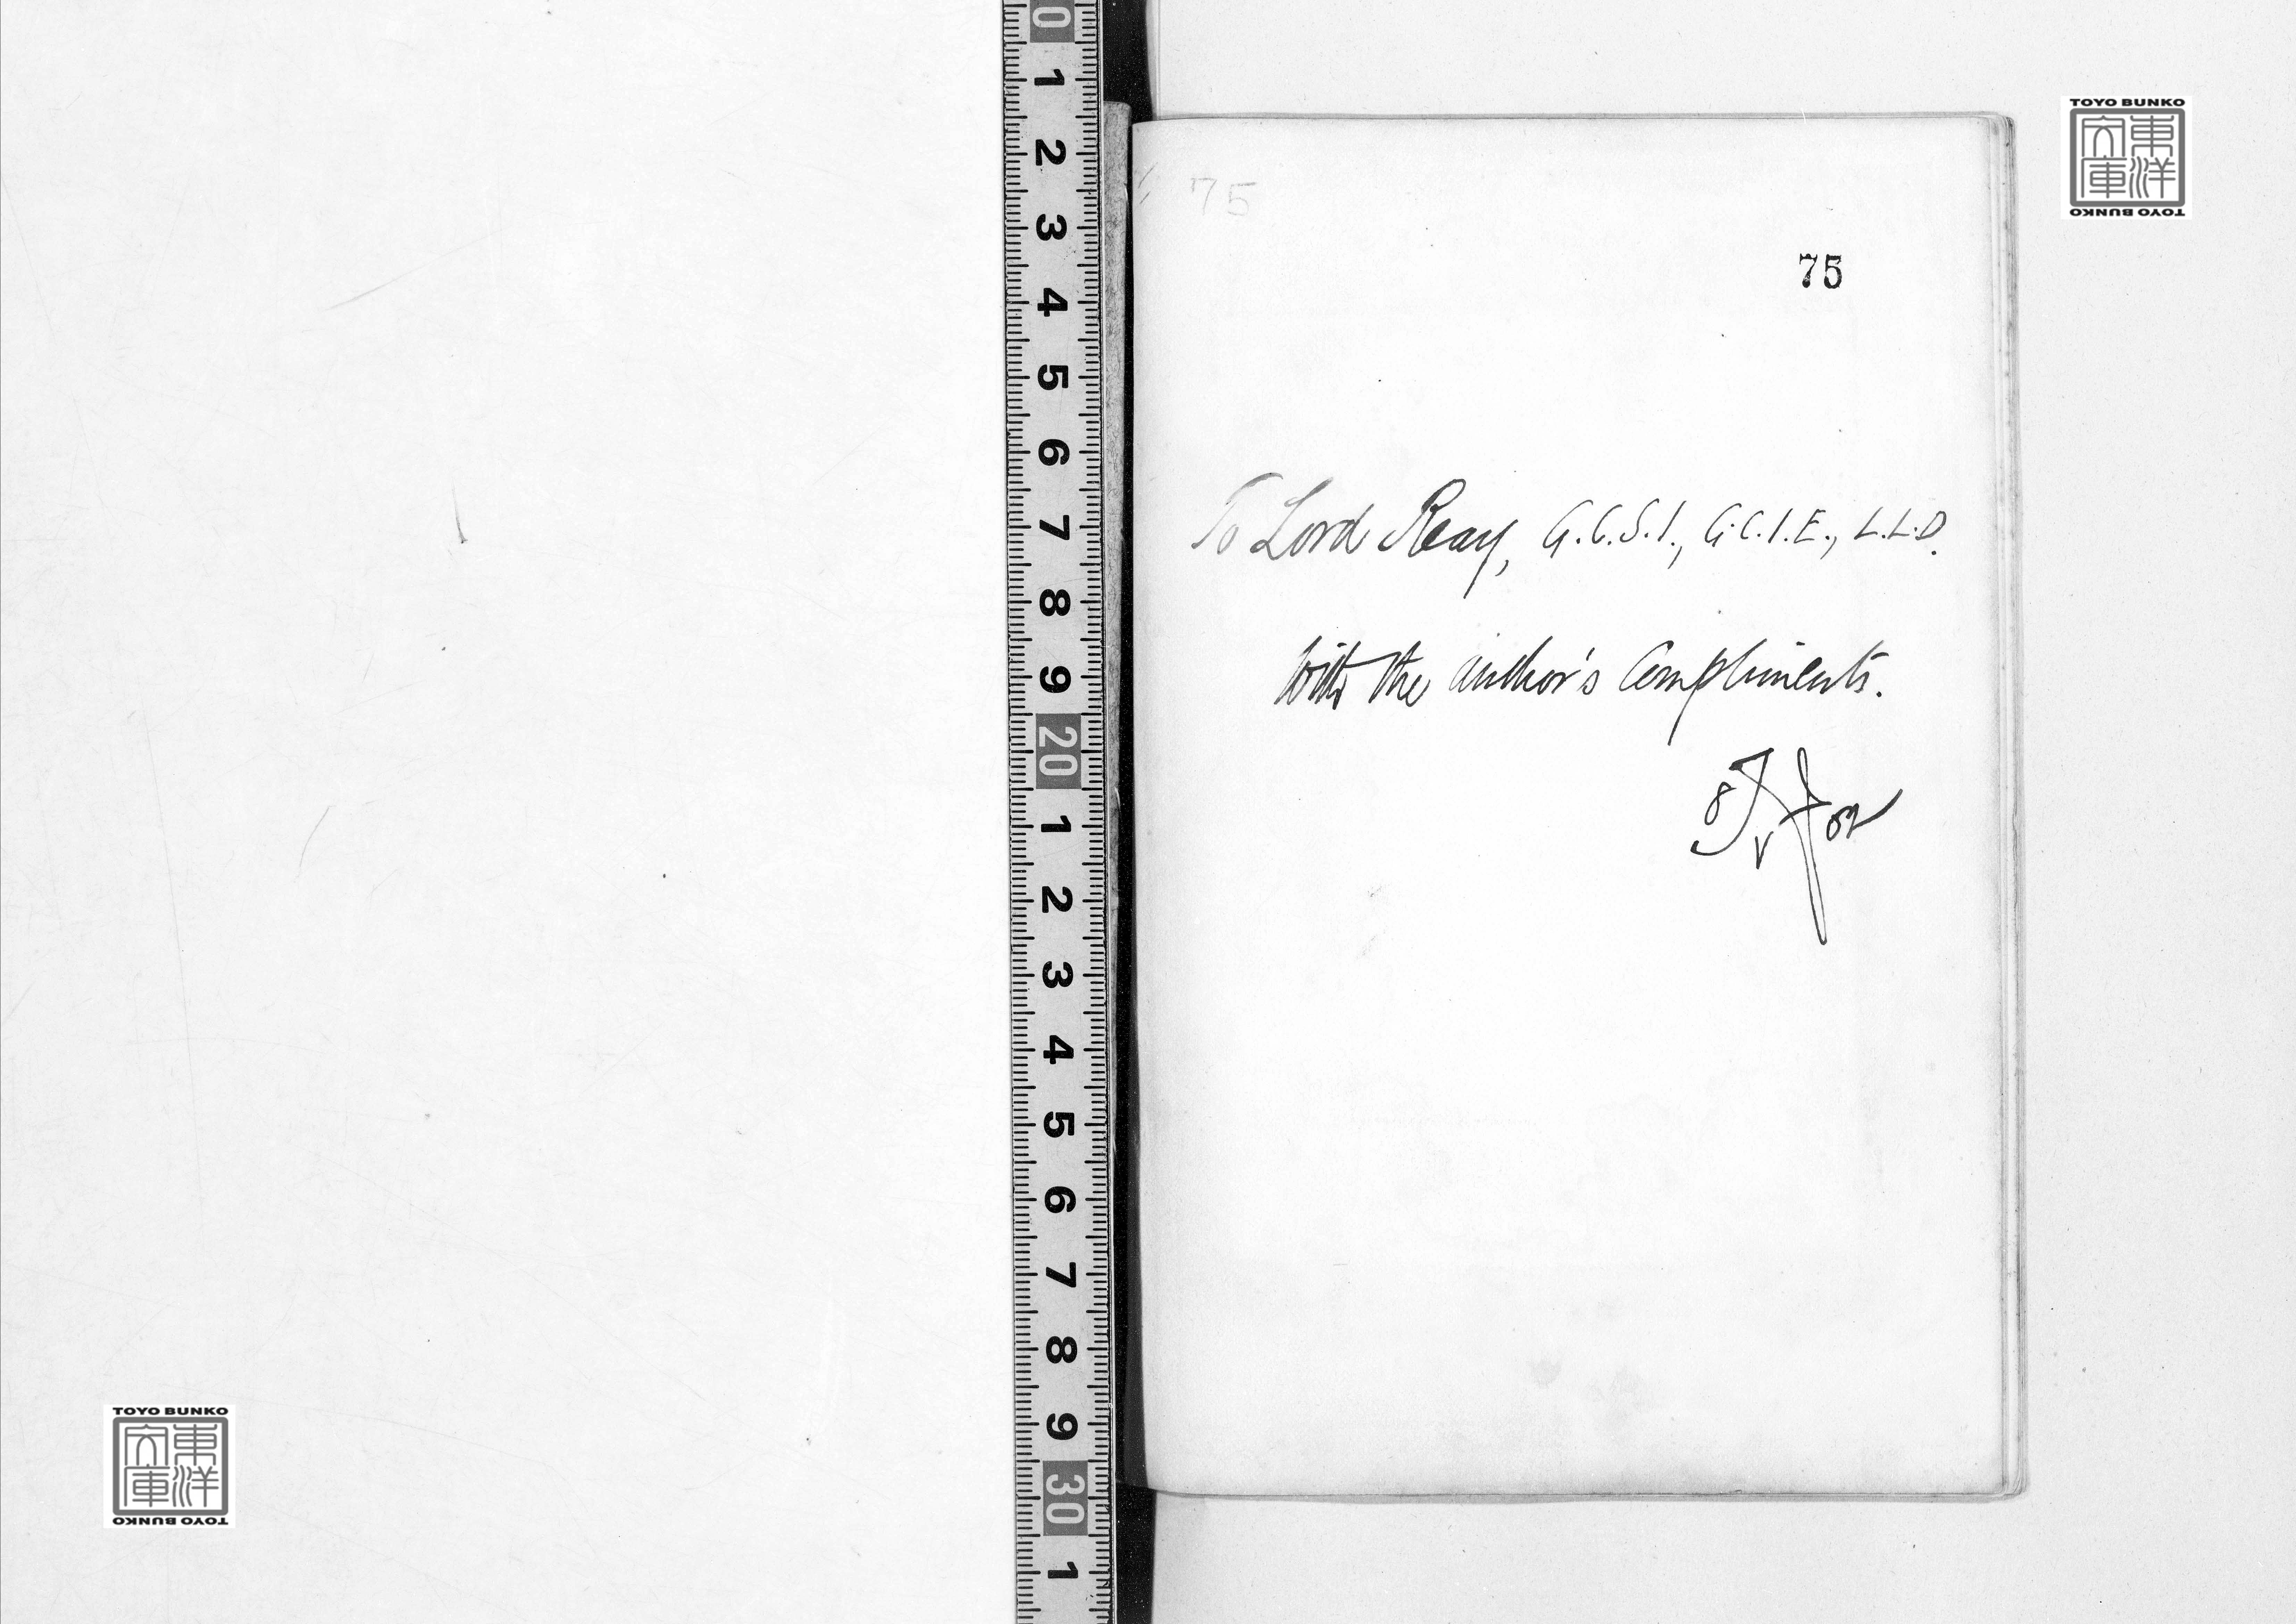 0
1
2
3
4
5
6
7
8
9
20
1
2
3
4
5
6
7
8
9
30
1
75
75
To Lord Reay, G.C.S.I., G.C.I.E., L.L.D.
With the author's Compliments.
TOYO BUNKO
東洋
文庫
TOYO BUNKO
TOYO BUNKO
東洋
文庫
TOYO BUNKO